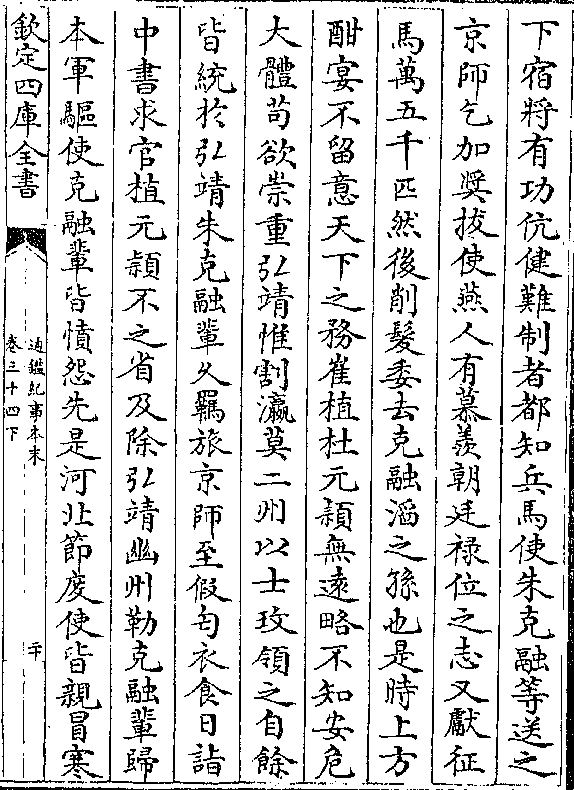 下宿將有功伉健難制者都知兵馬使朱克融等送之
京師乞加奨拔使燕人有慕羨朝廷禄位之志又獻征
馬萬五千匹然後削髮委去克融滔之孫也是時上方
酣宴不留意天下之務崔植杜元頴無逺略不知安危
大體苟欲崇重弘靖惟割瀛莫二州以士玫領之自餘
皆統於弘靖朱克融輩乆羈旅京師至假匄衣食日詣
中書求官植元頴不之省及除弘靖幽州勒克融輩歸
本軍驅使克融輩皆憤怨先是河北節度使皆親冒寒
欽定四庫全書
通鑑紀事本末
卷三十四下
二十